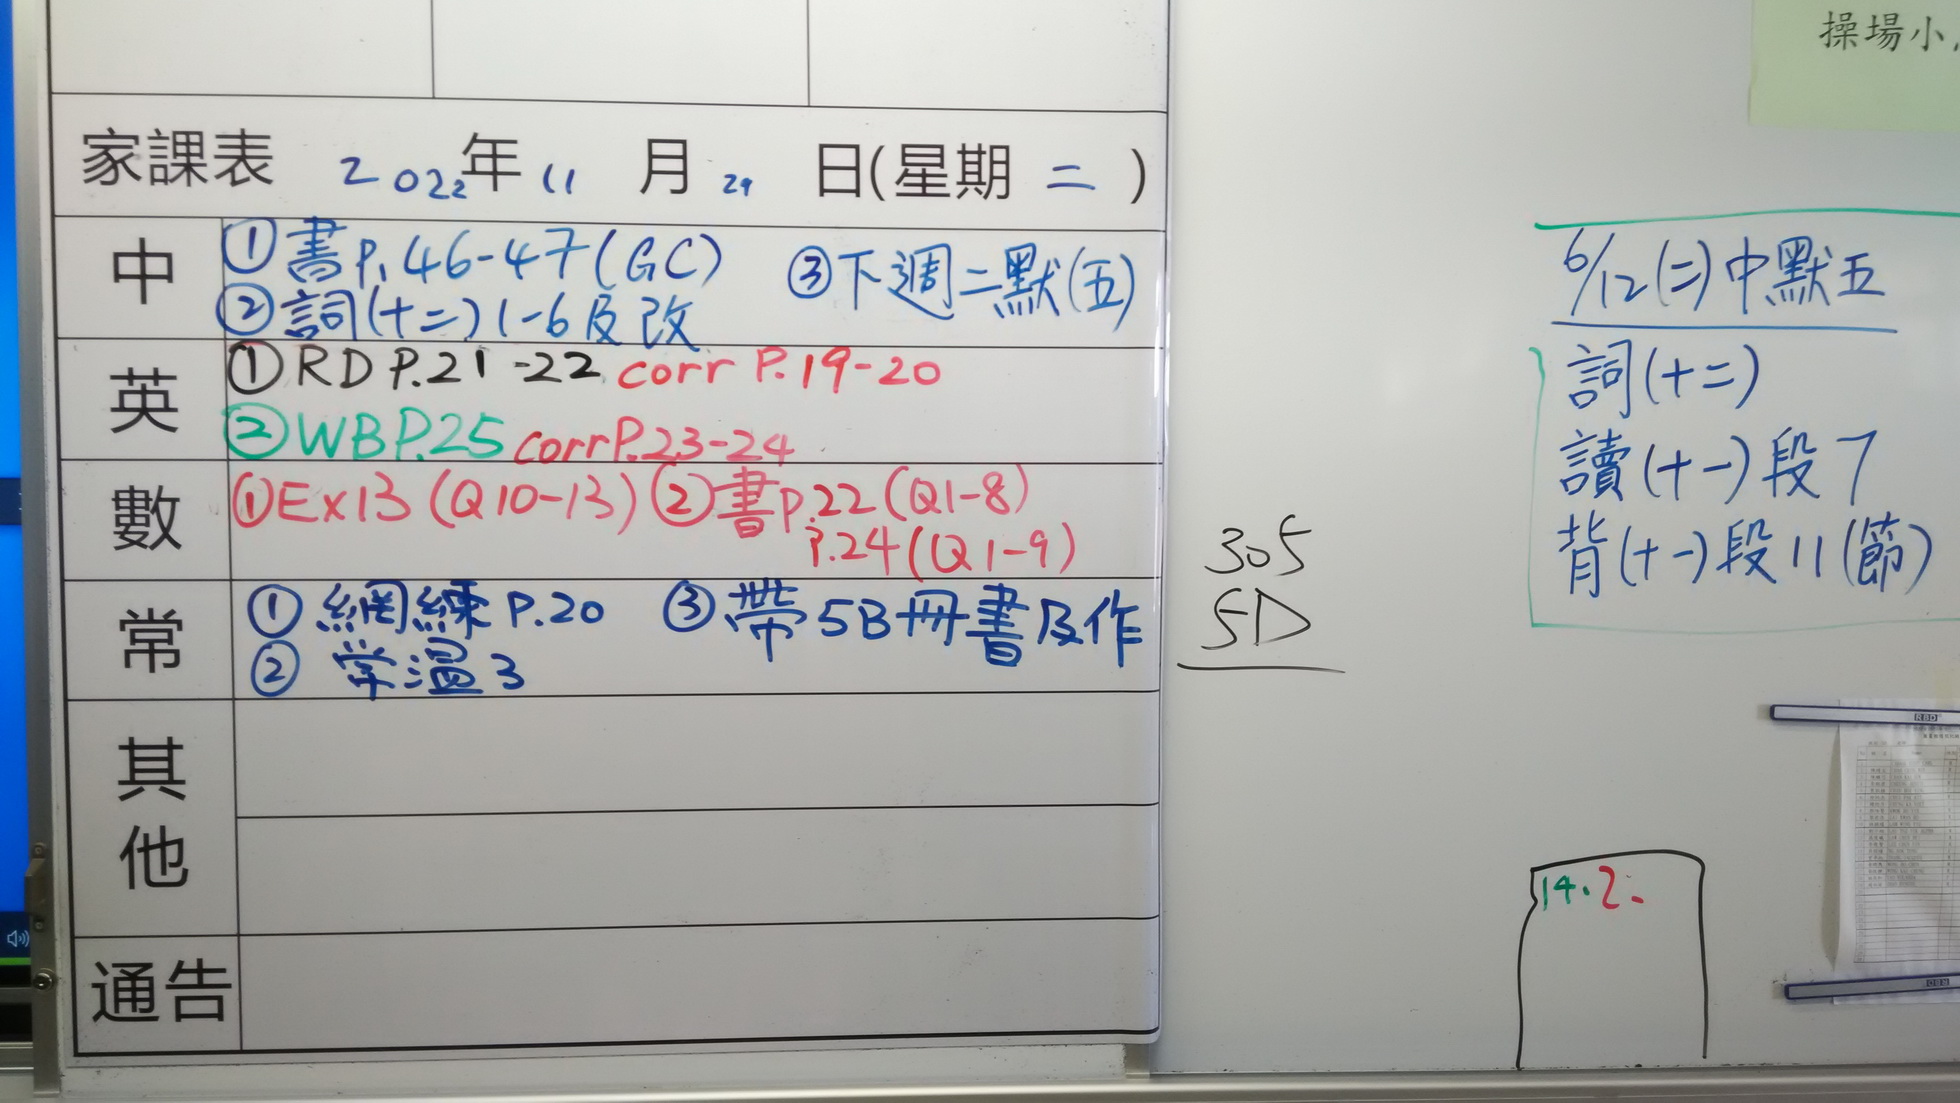 操場小
家課表 2022年 11 月 29 日(星期 二 )
中
①書P.46-47(GC) ③下週二默(五)
②詞(十二)1-6反改
英
①RD P.21-22 corr P.19-20
②WBP.25 corrP.23-24
數
①Ex13(Q10-13)②書p.22(Q1-8)
P.24(Q1-9)
常
①網練P.20 ③帶5B冊書及作
②常溫3
其他
通告
305
5D
6/12(二)中默五
詞(十二)
讀(十一)段7
背(十一)段11(節)
14. 2.
RBD